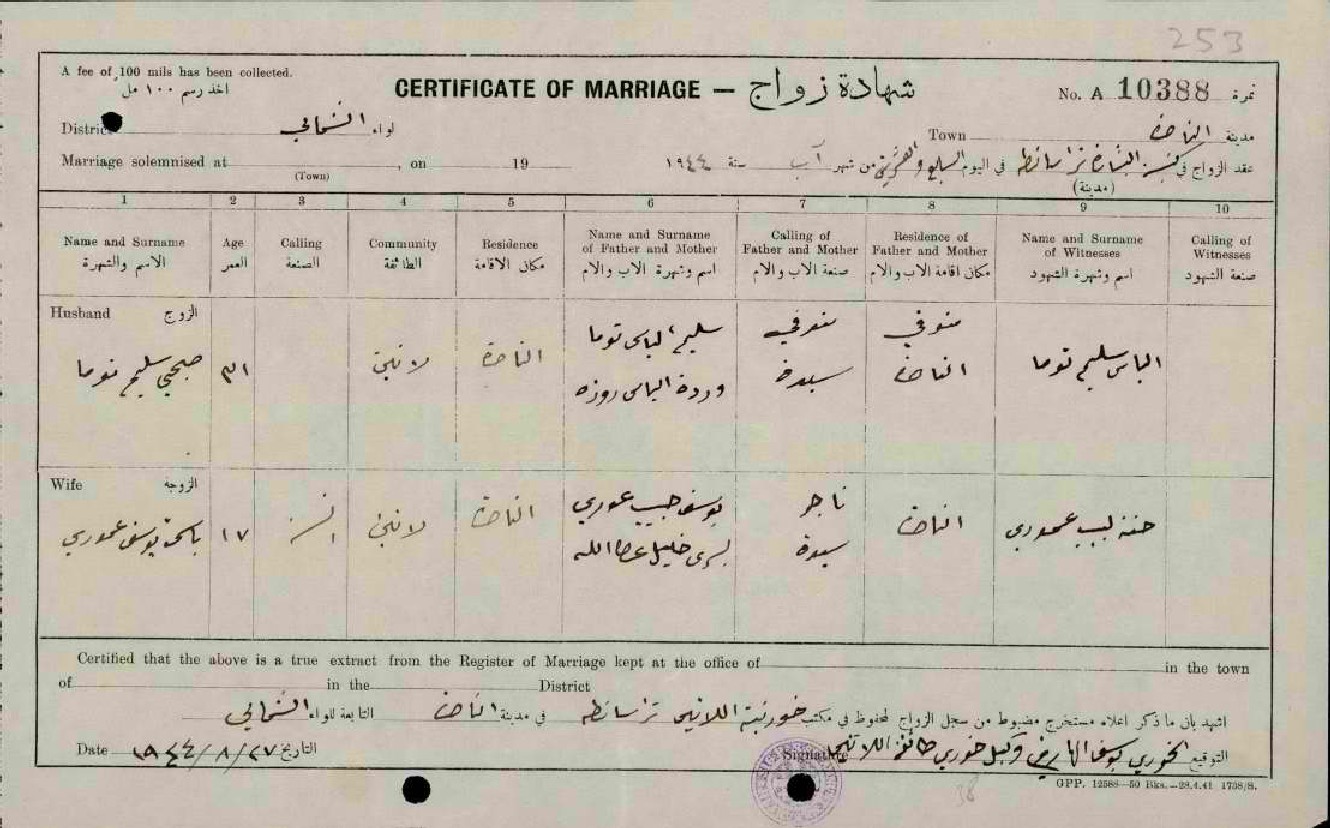 253
A fee of 100 mils has been collected.
اخذ رسم ١٠٠ مل
CERTIFICATE OF MARRIAGE — شهادة زواج
No. A 10388 نمرة
District لواء الشمالي
Town مدينة الناصرة
Marriage solemnised at , on 19
(Town)
عقد الزواج في كنيسة البشارة تراسانطه في اليوم السابع والعشرين من شهر آب سنة ١٩٤٤
(مدينة)
1 2 3 4 5 6 7 8 9 10
Name and Surname
الاسم والشهرة
Age
العمر
Calling
الصنعة
Community
الطائفة
Residence
مكان الاقامة
Name and Surname
of Father and Mother
اسم وشهرة الاب والام
Calling of
Father and Mother
صنعة الاب والام
Residence of
Father and Mother
مكان اقامة الاب والام
Name and Surname
of Witnesses
اسم وشهرة الشهود
Calling of
Witnesses
صنعة الشهود
Husband الزوج
صبحي سليم توما
٣١
لاتيني
الناصرة
سليم الياس توما
وردة الياس روزه
متوفي
سيدة
متوفي
الناصرة
الياس سليم توما
Wife الزوجه
باسمة يوسف عموري
١٧
لاتيني
الناصرة
يوسف حبيب عموري
يسرى خليل عطاالله
تاجر
سيدة
الناصرة
حنه لبيب عموري
Certified that the above is a true extract from the Register of Marriage kept at the office of in the town
of in the District
اشهد بان ما ذكر اعلاه مستخرج مضبوط من سجل الزواج المحفوظ في مكتب خورنية اللاتين تراسانطه في مدينة الناصرة التابعة للواء الشمالي
Date ١٩٤٤/٨/٢٧ التاريخ
Signature الخوري يوسف وكيل خوري طائفة اللاتين التوقيع
GPP. 12588—50 Bks.—28.4.41 1738/S.
38